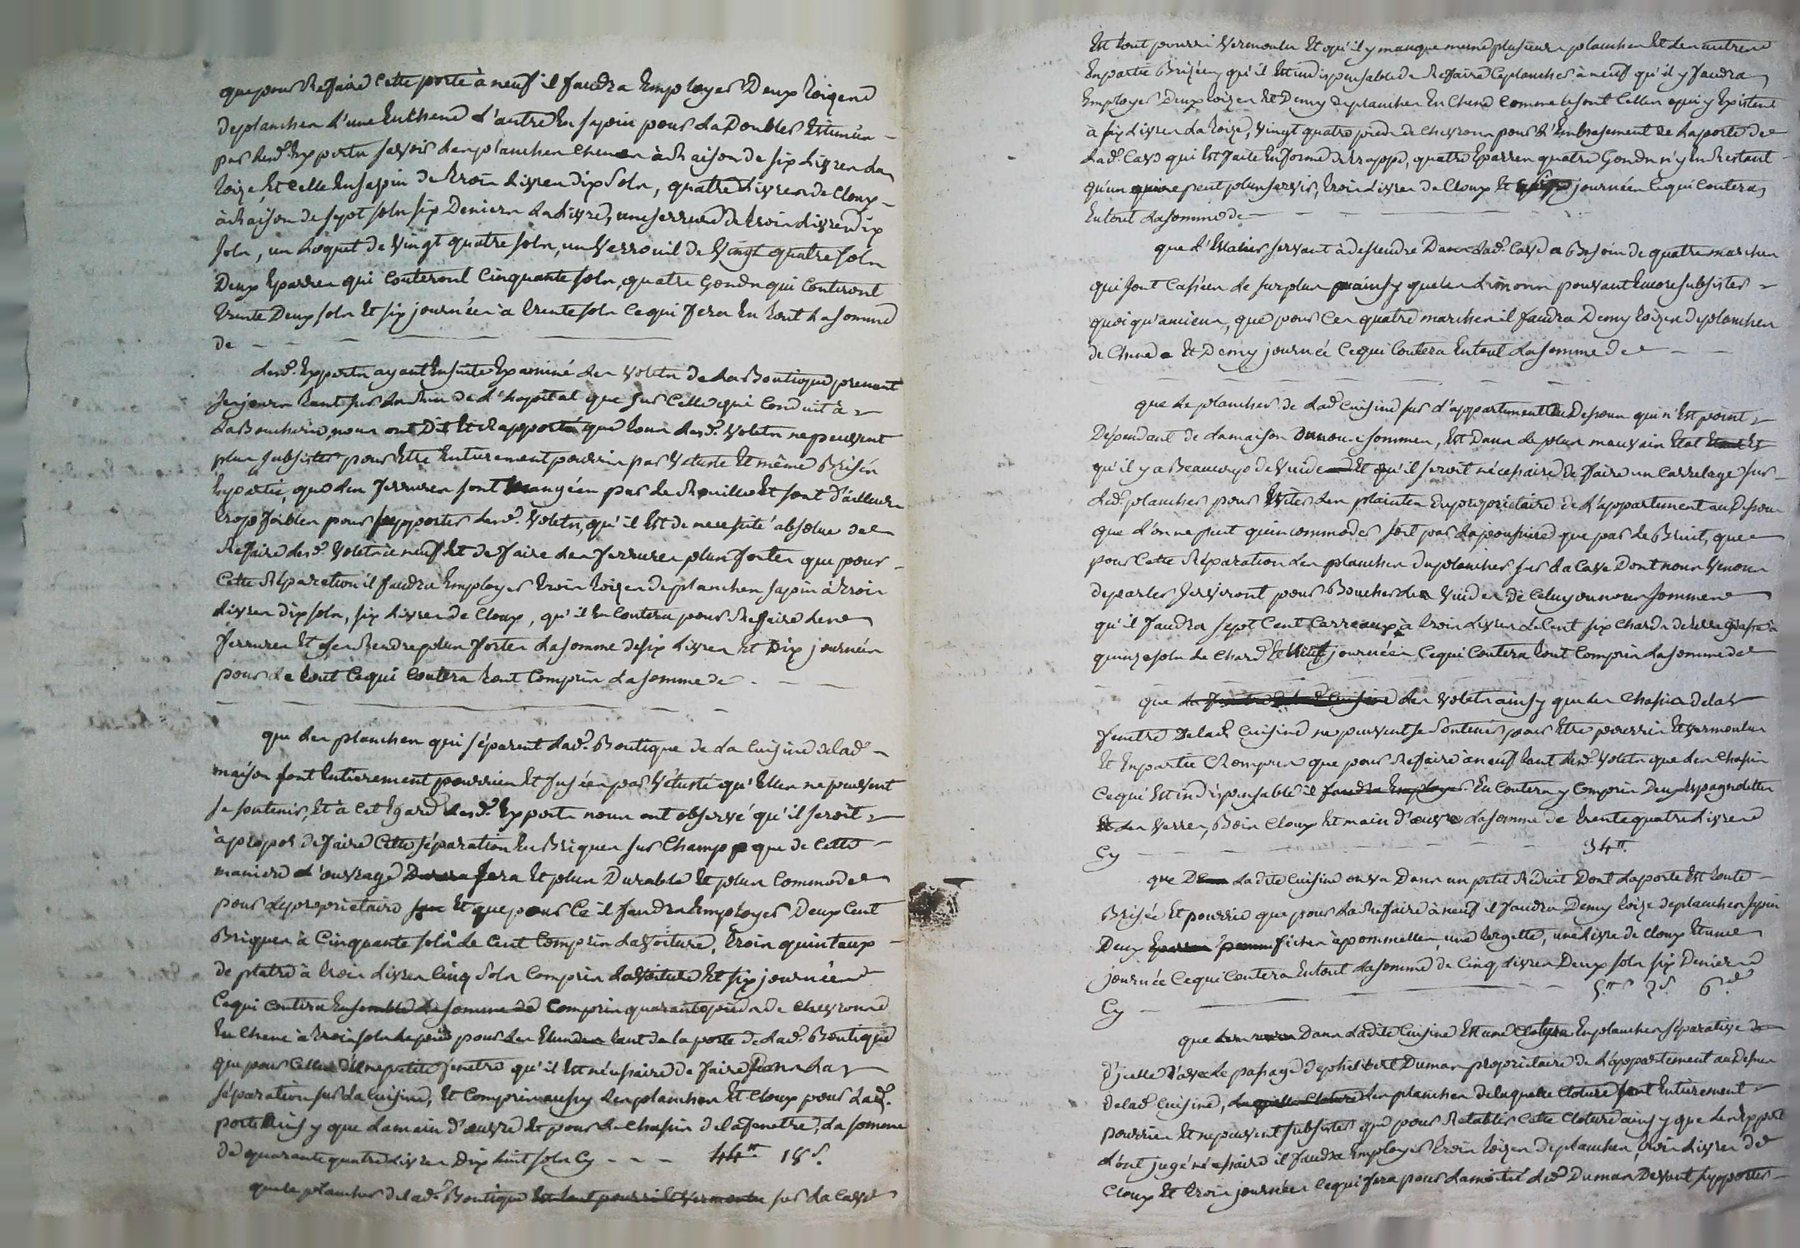 que pour Refaire cette porte à neuf il faudra Employer Deux toizes
de planches l'une En chene l'autre En sapin pour la Doubler Estimée
par lesd. Experts savoir les planches chenes à Raison de six livres la
toize, Et celle En sapin de trois livres dix sols, quatre livres de cloux
à Raison de sept sols six Deniers la livre, une serrure de trois livres dix
sols, un loquet de vingt quatre sols, un verrouil de vingt quatre sols
Deux Eparres qui couteront cinquante sols, quatre gonds qui couteront
trente Deux sols Et six journées à trente sols ce qui fera En tout la somme
de
Lesd. Experts ayant Ensuite Examiné les volets de la Boutique prenant
ses jours tant sur la Rue de l'hopital que sur celle qui conduit à
la Boucherie, nous ont Dit Et Rapporté que tous lesd. volets ne peuvent
plus subsister pour Etre Entierement pourris par vetusté Et même Brisés
En partie, que les ferrures sont mangées par la Rouille Et sont d'ailleurs
trop foibles pour supporter lesd. volets, qu'il Est de necessité absolue de
Refaire lesd. volets à neuf Et de faire des ferrures plus fortes que pour
cette Réparation il faudra Employer trois toizes de planches sapin à trois
livres dix sols, six livres de cloux, qu'il En coutera pour Refaire les
ferrures Et les Rendre plus fortes la somme de six livres Et Dix journées
pour le tout ce qui coutera tout compris la somme de
que les planches qui séparent lad. Boutique de la cuisine de lad.
maison sont Entierement pourries Et usées par vétusté qu'Elles ne peuvent
se soutenir, Et à cet Egard lesd. Experts nous ont observé qu'il seroit
à propos de faire cette séparation En Briques sur champ que de cette
maniere l'ouvrage sera Et plus Durable Et plus commode
pour le proprietaire Et que pour ce il faudra Employer Deux cent
Briques à cinquante sols le cent compris la voiture, trois quintaux
de platre à trois livres cinq sols compris la voiture Et six journées
ce qui coutera Ensemble la somme de compris quarante pieds de chevrons
En chene à trois sols le pied pour les tant de la porte de lad. Boutique
que pour celles d'une petite fenetre qu'il Est nécessaire de faire Dans la
séparation sur la cuisine, Et compris aussy les planches Et cloux pour lad.
porte Ainsy que la main d'œuvre Et pour le chassis de la fenetre, la somme
de quarante quatre livres Dix huit sols Cy - - - 44 lt 18 s.
que le plancher de lad. Boutique Est tout pourri Et vermoulu sur la cave
Est tout pourri vermoulu Et qu'il y manque meme plusieurs planches Et les autres
En partie Brisées, qu'il Est indispensable de Refaire le plancher à neuf qu'il y faudra
Employer Deux toizes Et Demy de planches En chene comme le sont celles qui y Existent
à six livres la toize, vingt quatre pieds de chevrons pour l'Embrasement de la porte de
lad. cave qui Est faite En forme de trappe, quatre Eparres quatre gonds n'y En Restant
qu'un qui ne peut plus servir, trois livres de cloux Et journées ce qui coutera
En tout la somme de
que l'Escalier servant à descendre Dans lad. cave a Besoin de quatre marches
qui sont cassées le surplus ainsy que les limons pouvant Encore subsister
quoi qu'anciens, que pour ces quatre marches il faudra Demy toizes de planches
de chene Et Demy journée ce qui coutera En tout la somme de
que le plancher de lad. cuisine sur l'appartement Au Dessous qui n'Est point
Dépendant de la maison Dans ou nous sommes, Est Dans le plus mauvais Etat Et
qu'il y a Beaucoup de vuide Et qu'il seroit nécessaire De faire un carrelage sur
led. plancher pour Eviter les plaintes du proprietaire de l'appartement au Dessous
que l'on ne peut qu'incommoder soit par la poussiere que par le Bruit, que
pour cette Réparation les planches du plancher sur la cave Dont nous venons
de parler serviront pour Boucher les vuides de celuy ou nous sommes
qu'il faudra sept cent carreaux à trois livres le cent six chards de terre grasse à
quinze sols le chard Et huit journées ce qui coutera tout compris la somme de
que les volets ainsy que les chassis de la
fenetre De lad. cuisine ne peuvent se soutenir pour Etre pourris Et vermoulus
Et En partie Rompus que pour Refaire à neuf tant lesd. volets que les chassis
ce qui Est indispensable il faudra Employer En coutera y compris Deux Espagnolettes
Et les verres, Bois cloux Et main d'œuvre la somme de trente quatre livres
Cy 34 lt
que De ladite cuisine on va Dans un petit Réduit Dont la porte Est toute
Brisée Et pourrie que pour la Refaire à neuf il faudra Demy toize de planches sapin
Deux fiches à pommelles, une targette, une livre de cloux Et une
journée ce qui coutera En tout la somme de cinq livres Deux sols six Deniers
Cy 5 lt 2 s. 6 d
que Dans ladite cuisine Est une cloture En planches séparative
d'icelle D'avec le passage de philibert Dumas proprietaire de l'appartement au Dessus
De lad. cuisine, les planches de laquelle cloture sont Entierement
pourries Et ne peuvent subsister que pour Retablir cette cloture ainsy que les Experts
l'ont jugé nécessaire il faudra Employer trois toizes de planches trois livres de
cloux Et trois journées ce qui fera pour la moitié led. Dumas Devant supporter